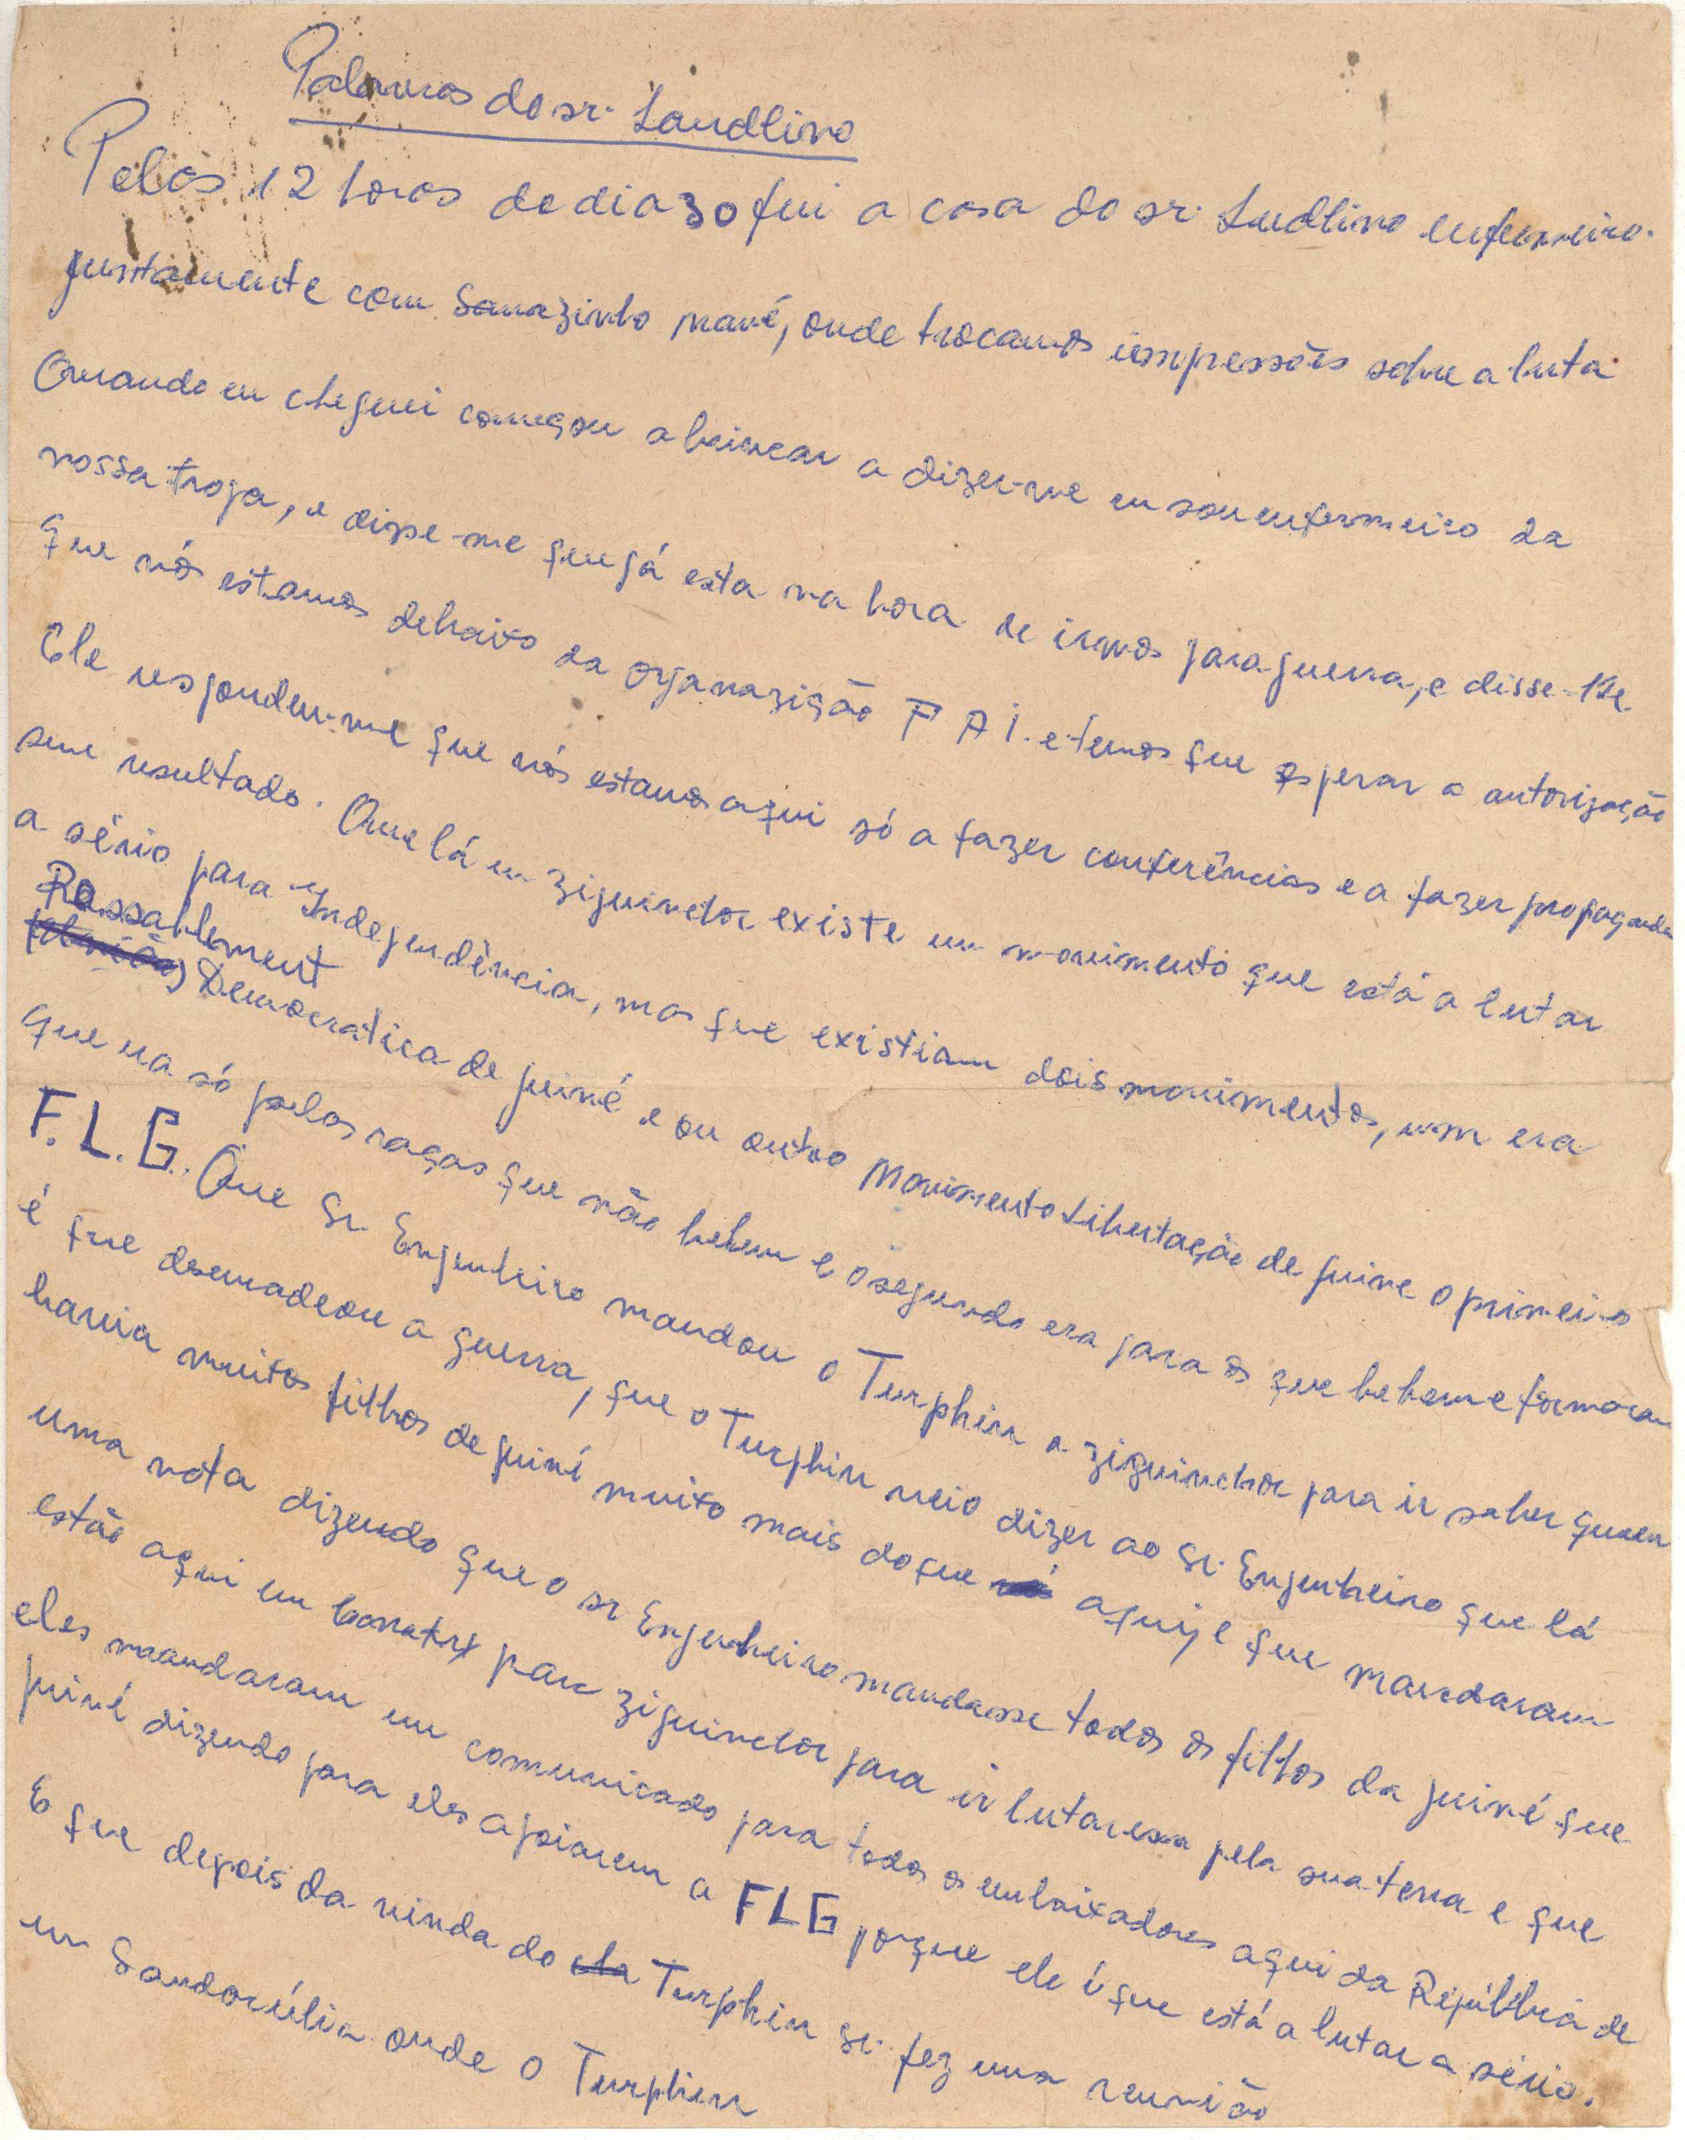 Palavras do sr. Laudlino
Pelas 12 horas do dia 30 fui a casa do sr. Ludlino enfermeiro.
juntamente com Sanazinho mané, onde trocamos impressões sobre a luta.
Quando eu cheguei começou a brincar a dizer-me eu sou enfermeiro da
nossa tropa, e disse-me que já esta na hora de irmos para guerra, e disse-lhe
que nós estamos debaixo da organazição P A I. e temos que esperar a autorização
Ele respondeu-me que nós estamos aqui só a fazer conferências e a fazer propaganda
sem resultado. Que lá em ziguinchor existe um movimento que está a lutar
a sério para Independência, mas que existiam dois movimentos, um era
Rassablement
Democratica de guiné e ou outro Movimento Libertação de guine o primeiro
que era só pelas raças que não bebem e o segundo era para os que bebem e formaram
F.L.G. Que Sr. Engenheiro mandou o Turphin a ziguinchor para ir saber quem
é que desencadeou a guerra, que o Turphin veio dizer ao Sr. Engenheiro que lá
havia muitos filhos de guiné muito mais do que aqui, e que mandaram
uma nota dizendo que o sr Engenheiro mandasse todos os filhos da guiné que
estão aqui em Conakry para ziguinchor para ir lutarem pela sua terra e que
eles mandaram um comunicado para todos os embaixadores aqui da República de
guiné dizendo para eles apoiarem a FLG porque ele é que está a lutar a sério.
E que depois da vinda do Turphin se fez uma reunião
em Sandorvélia onde o Turphin